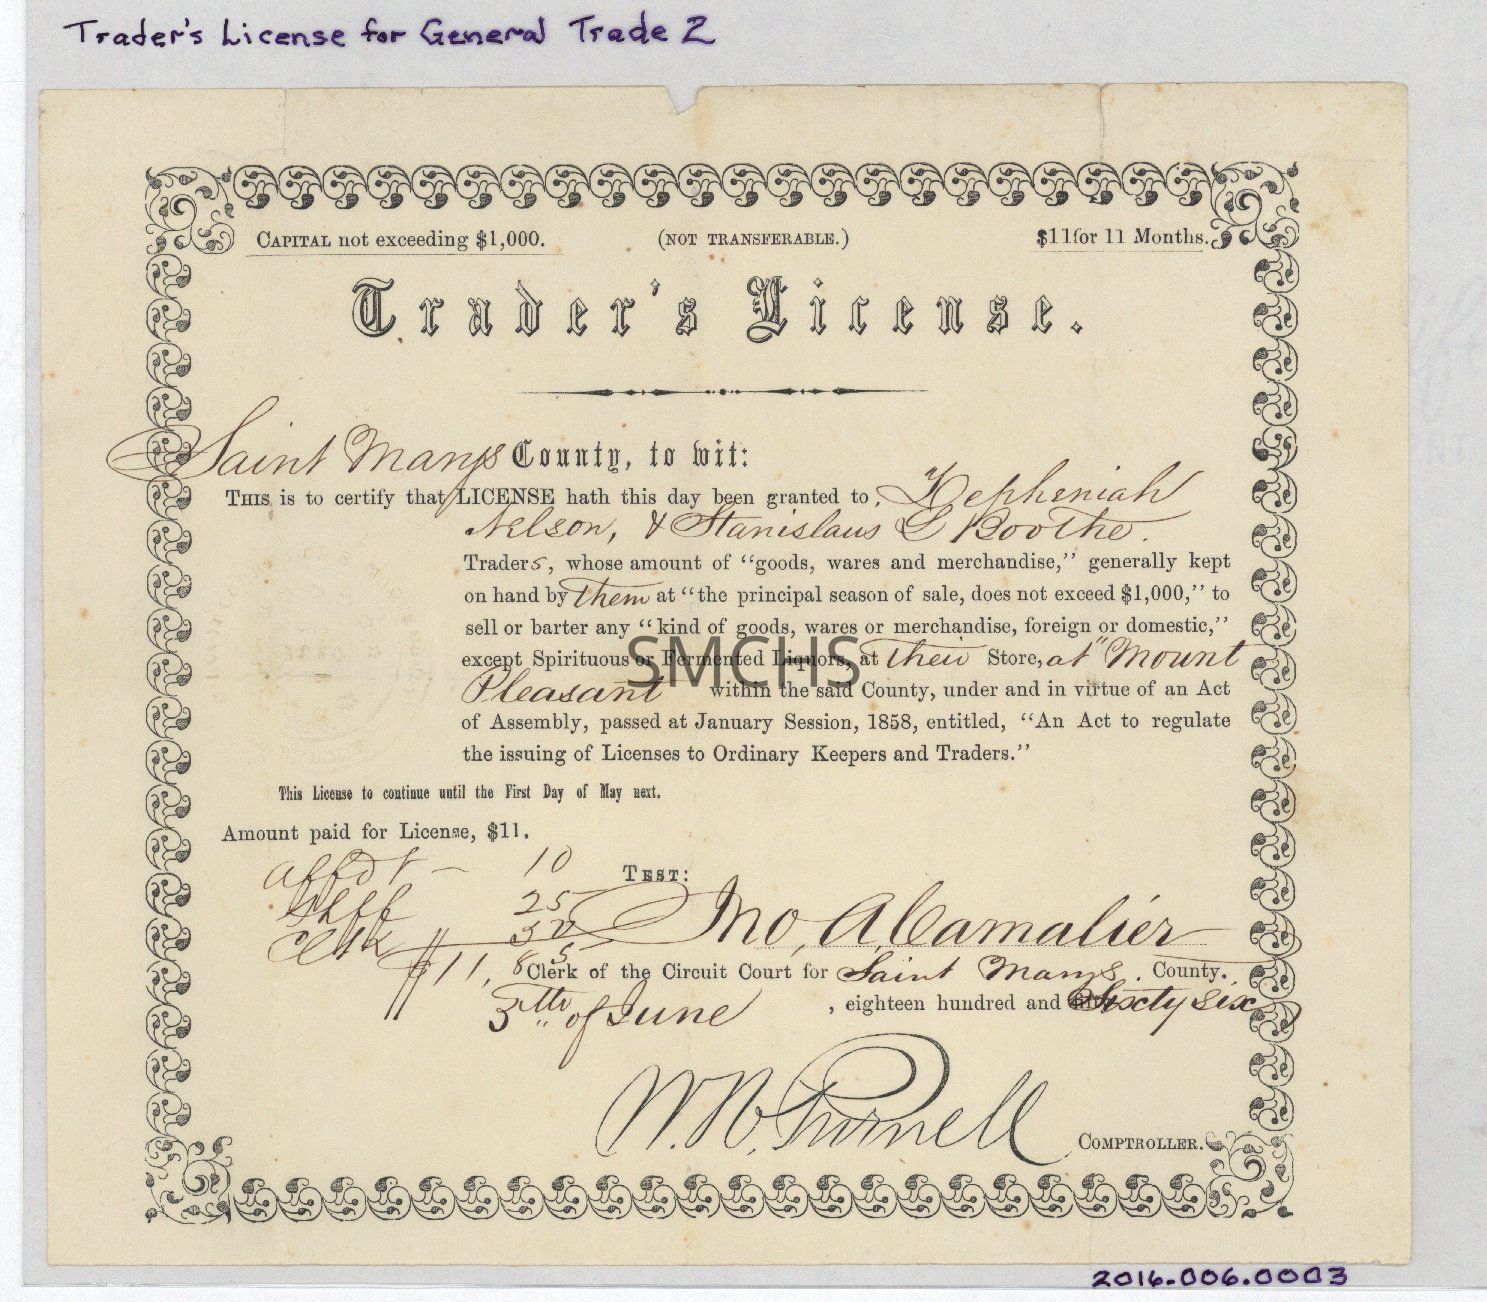 Trader's License for General Trade 2
CAPITAL not exceeding $1,000. (NOT TRANSFERABLE.) $11 for 11 Months.
Trader's License.
Saint Marys County, to wit:
THIS is to certify that LICENSE hath this day been granted to, Zepheniah
Nelson, & Stanislaus L Boothe.
Traders, whose amount of "goods, wares and merchandise," generally kept
on hand by them at "the principal season of sale, does not exceed $1,000," to
sell or barter any "kind of goods, wares or merchandise, foreign or domestic,"
SMCHS
except Spirituous or Fermented Liquors, at their Store, at "Mount
Pleasant within the said County, under and in virtue of an Act
of Assembly, passed at January Session, 1858, entitled, "An Act to regulate
the issuing of Licenses to Ordinary Keepers and Traders."
This License to continue until the First Day of May next.
Amount paid for License, $11.
affdt — 10
TEST:
25
Clk 50 Jno, A, Camalier
$11,85 Clerk of the Circuit Court for Saint Marys. County.
5th of June , eighteen hundred and Sixty six
W. W. Purnell COMPTROLLER.
2016.006.0003